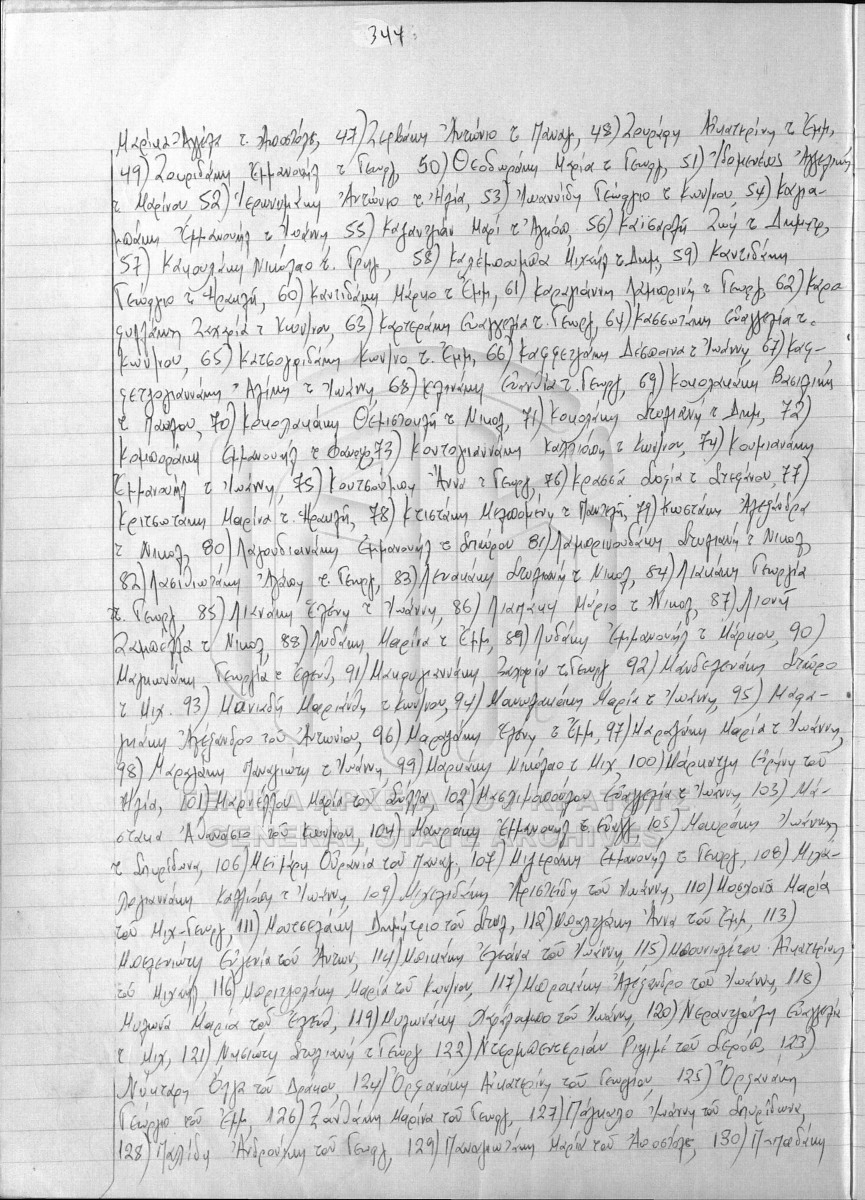 344
Μαρίκα-Αγγέλα τ. Αποστόλ, 47) Ζερβάκη Ἀντώνιο τ Παναγ, 48) Ζουράφη Αἰκατερίνη τ Ἐμμ,
49) Ζουριδάκη Ἐμμανουήλ τ Γεωργ, 50) Θεοδωράκη Μαρία τ Γεωργ, 51) Ἰδομενέως Ἀγγελική
τ Μαρίνου 52) Ἱερωνυμάκη Ἀντώνιο τ Ἠλία, 53) Ἰωαννίδη Γεώργιο τ Κων/νου, 54) Καλα-
μπάκη Ἐμμανουήλ τ Ἰωάννη 55) Καλαντζιάν Μαρί τ Ἀγκόπ, 56) Καισαρλῆ Ζωή τ Δημητρ,
57) Κακουλάκη Νικόλαο τ. Γρηγ, 58) Καλέμπουμπα Μιχαήλ τ Δημ, 59) Καντιδάκη
Γεώργιο τ Ἡρακλῆ, 60) Καντιδάκη Μάρκο τ Ἐμμ, 61) Καραγιάννη Λαμπρινή τ Γεωργ, 62) Καρα
φυλλάκη Ζαχαρία τ Κων/νου, 63) Καρτεράκη Εὐαγγελία τ. Γεωργ, 64) Κασσωτάκη Εὐαγγελία τ.
Κων/νου, 65) Κατσογριδάκη Κων/νο τ. Ἐμμ, 66) Καφφετζάκη Δέσποινα τ Ἰωάννη, 67) Καφ-
φετζογιαννάκη Ἀλίκη τ Ἰωάννη, 68) Κλινάκη Εὐανθία τ. Γεωργ, 69) Κοκολακάκη Βασιλική
τ Παύλου, 70) Κοκολακάκη Θεμιστοκλῆ τ Νικολ, 71) Κοκολάκη Στυλιανή τ Δημ, 72)
Κομποράκη Ἐμμανουήλ τ 73) Κουτογιαννάκη Καλλιόπη τ Κων/νου, 74) Κουμιανάκη
Ἐμμανουήλ τ Ἰωάννη, 75) Κουτσούμπου Ἄννα τ Γεωργ, 76) Κρασσά Σοφία τ Στεφάνου, 77)
Κριτσωτάκη Μαρίνα τ. Ἡρακλῆ, 78) Κτιστάκη Μελπομένη τ Παντελῆ, 79) Κωστάκη Ἀλεξάνδρα
τ Νικολ, 80) Λαγουδιανάκη Ἐμμανουήλ τ Σπύρου 81) Λαμπρινουδάκη Στυλιανή τ Νικολ,
82) Λασιθιωτάκη Ἀγάπη τ. Γεωργ, 83) Λευακάκη Στυλιανή τ Νικολ, 84) Λιακάκη Γεωργία
τ. Γεωργ, 85) Λιανάκη Ἑλένη τ Ἰωάννη, 86) Λιαπάκη Μάριο τ Νικολ, 87) Λιονῆ
Ζαμπέλλα τ Νικολ, 88) Λυδάκη Μαρίνα τ Ἐμμ, 89) Λυδάκη Ἐμμανουήλ τ Μάρκου, 90)
Μαγκωνάκη Γεωργία τ Ἐλευθ, 91) Μακρυγιαννάκη Ζαχαρία τ. Γεωργ 92) Μανδελενάκη Σταύρο
τ Μιχ. 93) Μανιαδῆ Μαριάνθη τ Κων/νου, 94) Μανωλακάκη Μαρία τ Ἰωάννη, 95) Μαρα-
γκάκη Ἀλέξανδρο τοῦ Ἀντωνίου, 96) Μαραγάκη Ἑλένη τ Ἐμμ, 97) Μαραγάκη Μαρία τ Ἰωάννη,
98) Μαραγάκη Παναγιώτη τ Ἰωάννη, 99) Μαρκάκη Νικόλαο τ Μιχ, 100) Μάρκατζη Εἰρήνη τοῦ
Ἠλία, 101) Μαρνέλλου Μαρία τοῦ 102) Μασλιμοπούλου Εὐαγγελία τ Ἰωάννη, 103) Μά-
στακα Ἀθανάσιο τοῦ Κων/νου, 104) Μαυράκη Ἐμμανουήλ τ Εὐαγγ 105) Μαυράκη Ἰωάννη
τ Σπυρίδωνα, 106) Μεϊμέρη Οὐρανία τοῦ Παναγ, 107) Μιγεράκη Ἐμμανουήλ τ Γεωργ, 108) Μιχα-
λογιαννάκη Καλλιόπη τ Ἰωάννη, 109) Μιχελιδάκη Ἀριστείδη τοῦ Ἰωάννη, 110) Μοσχονᾶ Μαρία
τοῦ Μιχ-Γεωργ, 111) Μουτσελάκη Δημήτριο τοῦ Στυλ, 112) Μπαλτζάκη Ἄννα τοῦ Ἐμμ, 113)
Μπελενιώτη Εὐγενία τοῦ Ἀντων, 114) Μπικάκη Ἐλεάνα τοῦ Ἰωάννη, 115) Μπουνιαλέτου Αἰκατερίνη
τοῦ Μιχαήλ, 116) Μπριτζολάκη Μαρία τοῦ Κων/νου, 117) Μπροκάκη Ἀλέξανδρο τοῦ Ἰωάννη, 118)
Μυλωνᾶ Μαρία τοῦ Ἐλευθ, 119) Μυλωνάκη Χαράλαμπο τοῦ Ἰωάννη, 120) Νεραντζούλη Εὐαγγελία
τ Μιχ, 121) Νησιώτη Στυλιανή τ Γεωργ 122) Ντερμπεντεριάν Ριψιμέ τοῦ Σερόπ, 123)
Νύκταρη Ὄλγα τοῦ Δράκου, 124) Ὀργανάκη Αἰκατερίνη τοῦ Γεωργίου, 125) Ὀργανάκη
Γεώργιο τοῦ Ἐμμ, 126) Ξανθάκη Μαρίνα τοῦ Γεωργ, 127) Πάγκαλο Ἰωάννη τοῦ Σπυρίδωνα,
128) Παλίδη Ἀνδρονίκη τοῦ Γεωργ, 129) Παναγιωτάκη Μαρία τοῦ Ἀποστόλ, 130) Παπαδάκη
ΓΕΝΙΚΑ ΑΡΧΕΙΑ ΤΟΥ ΚΡΑΤΟΥΣ
GENERAL STATE ARCHIVES